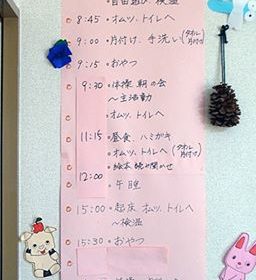 自由遊び、検温
8:45 オムツ、トイレへ
9:00 片付け、手洗い(タオル片付け)
9:15 おやつ
9:30 体操、朝の会
～主活動
オムツ、トイレへ
11:15 昼食、ハミガキ
オムツ、トイレへ(タオル片付け)
絵本読み聞かせ
12:00 午睡
15:00 起床 オムツ、トイレへ
～検温
15:30 おやつ